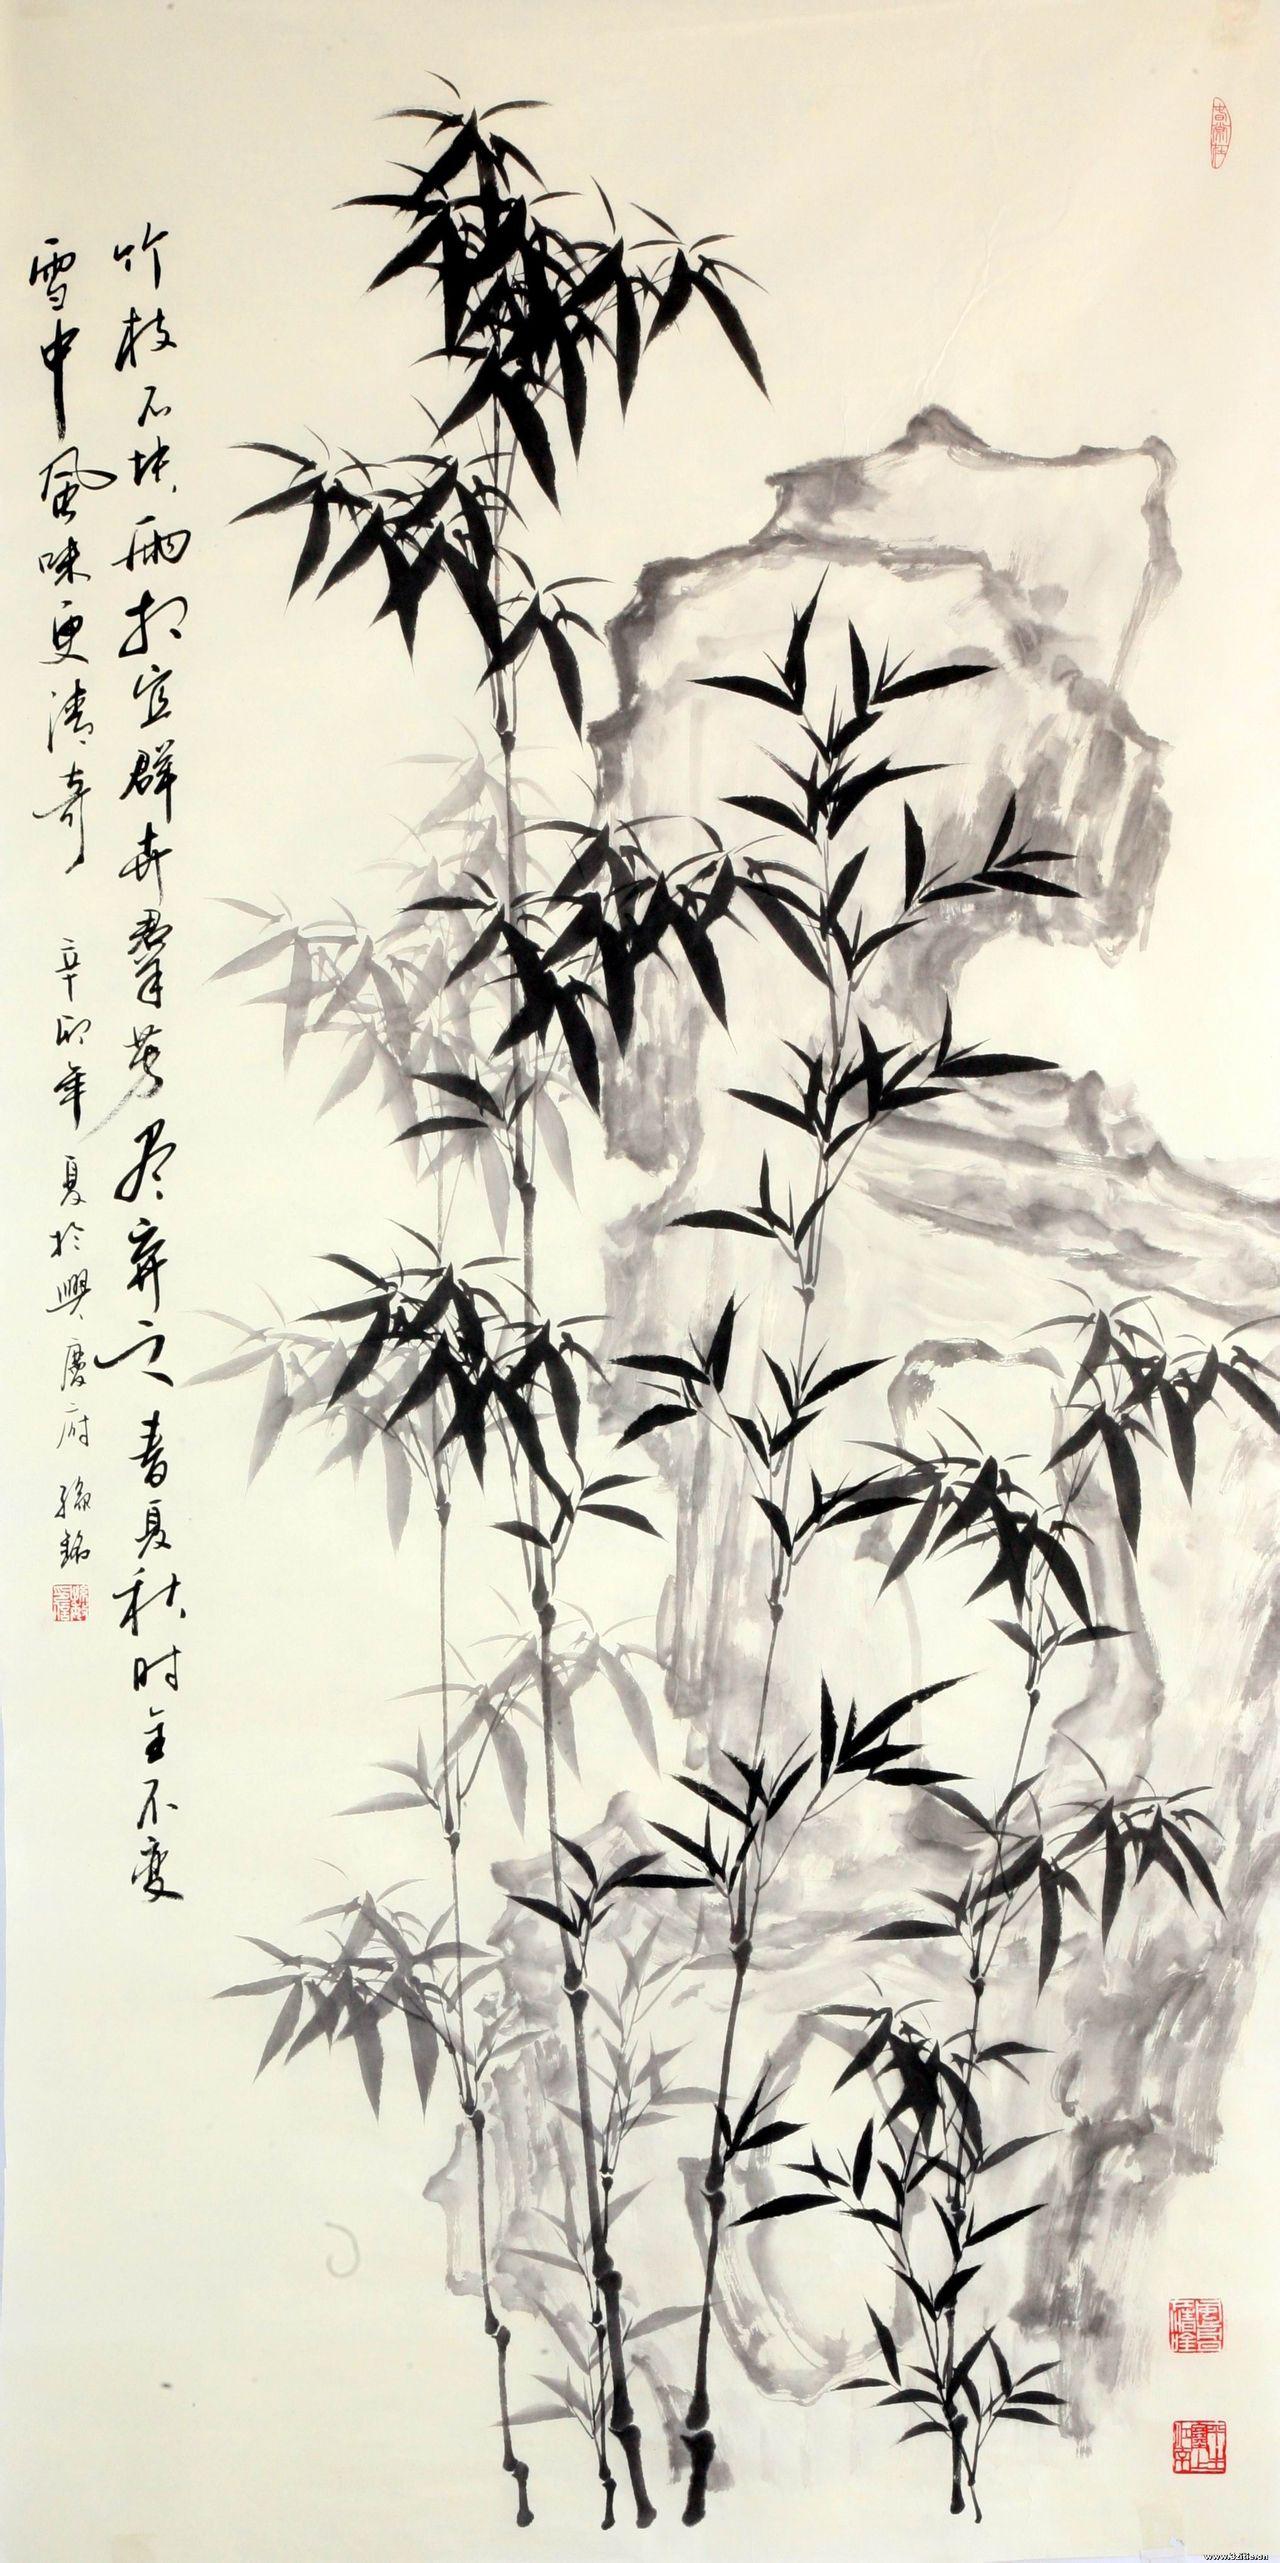 竹枝石块两相宜群卉群芳尽弃之春夏秋时全不变
雪中风味更清奇
辛卯年夏於興慶府孫銘
www.kzitie.cn